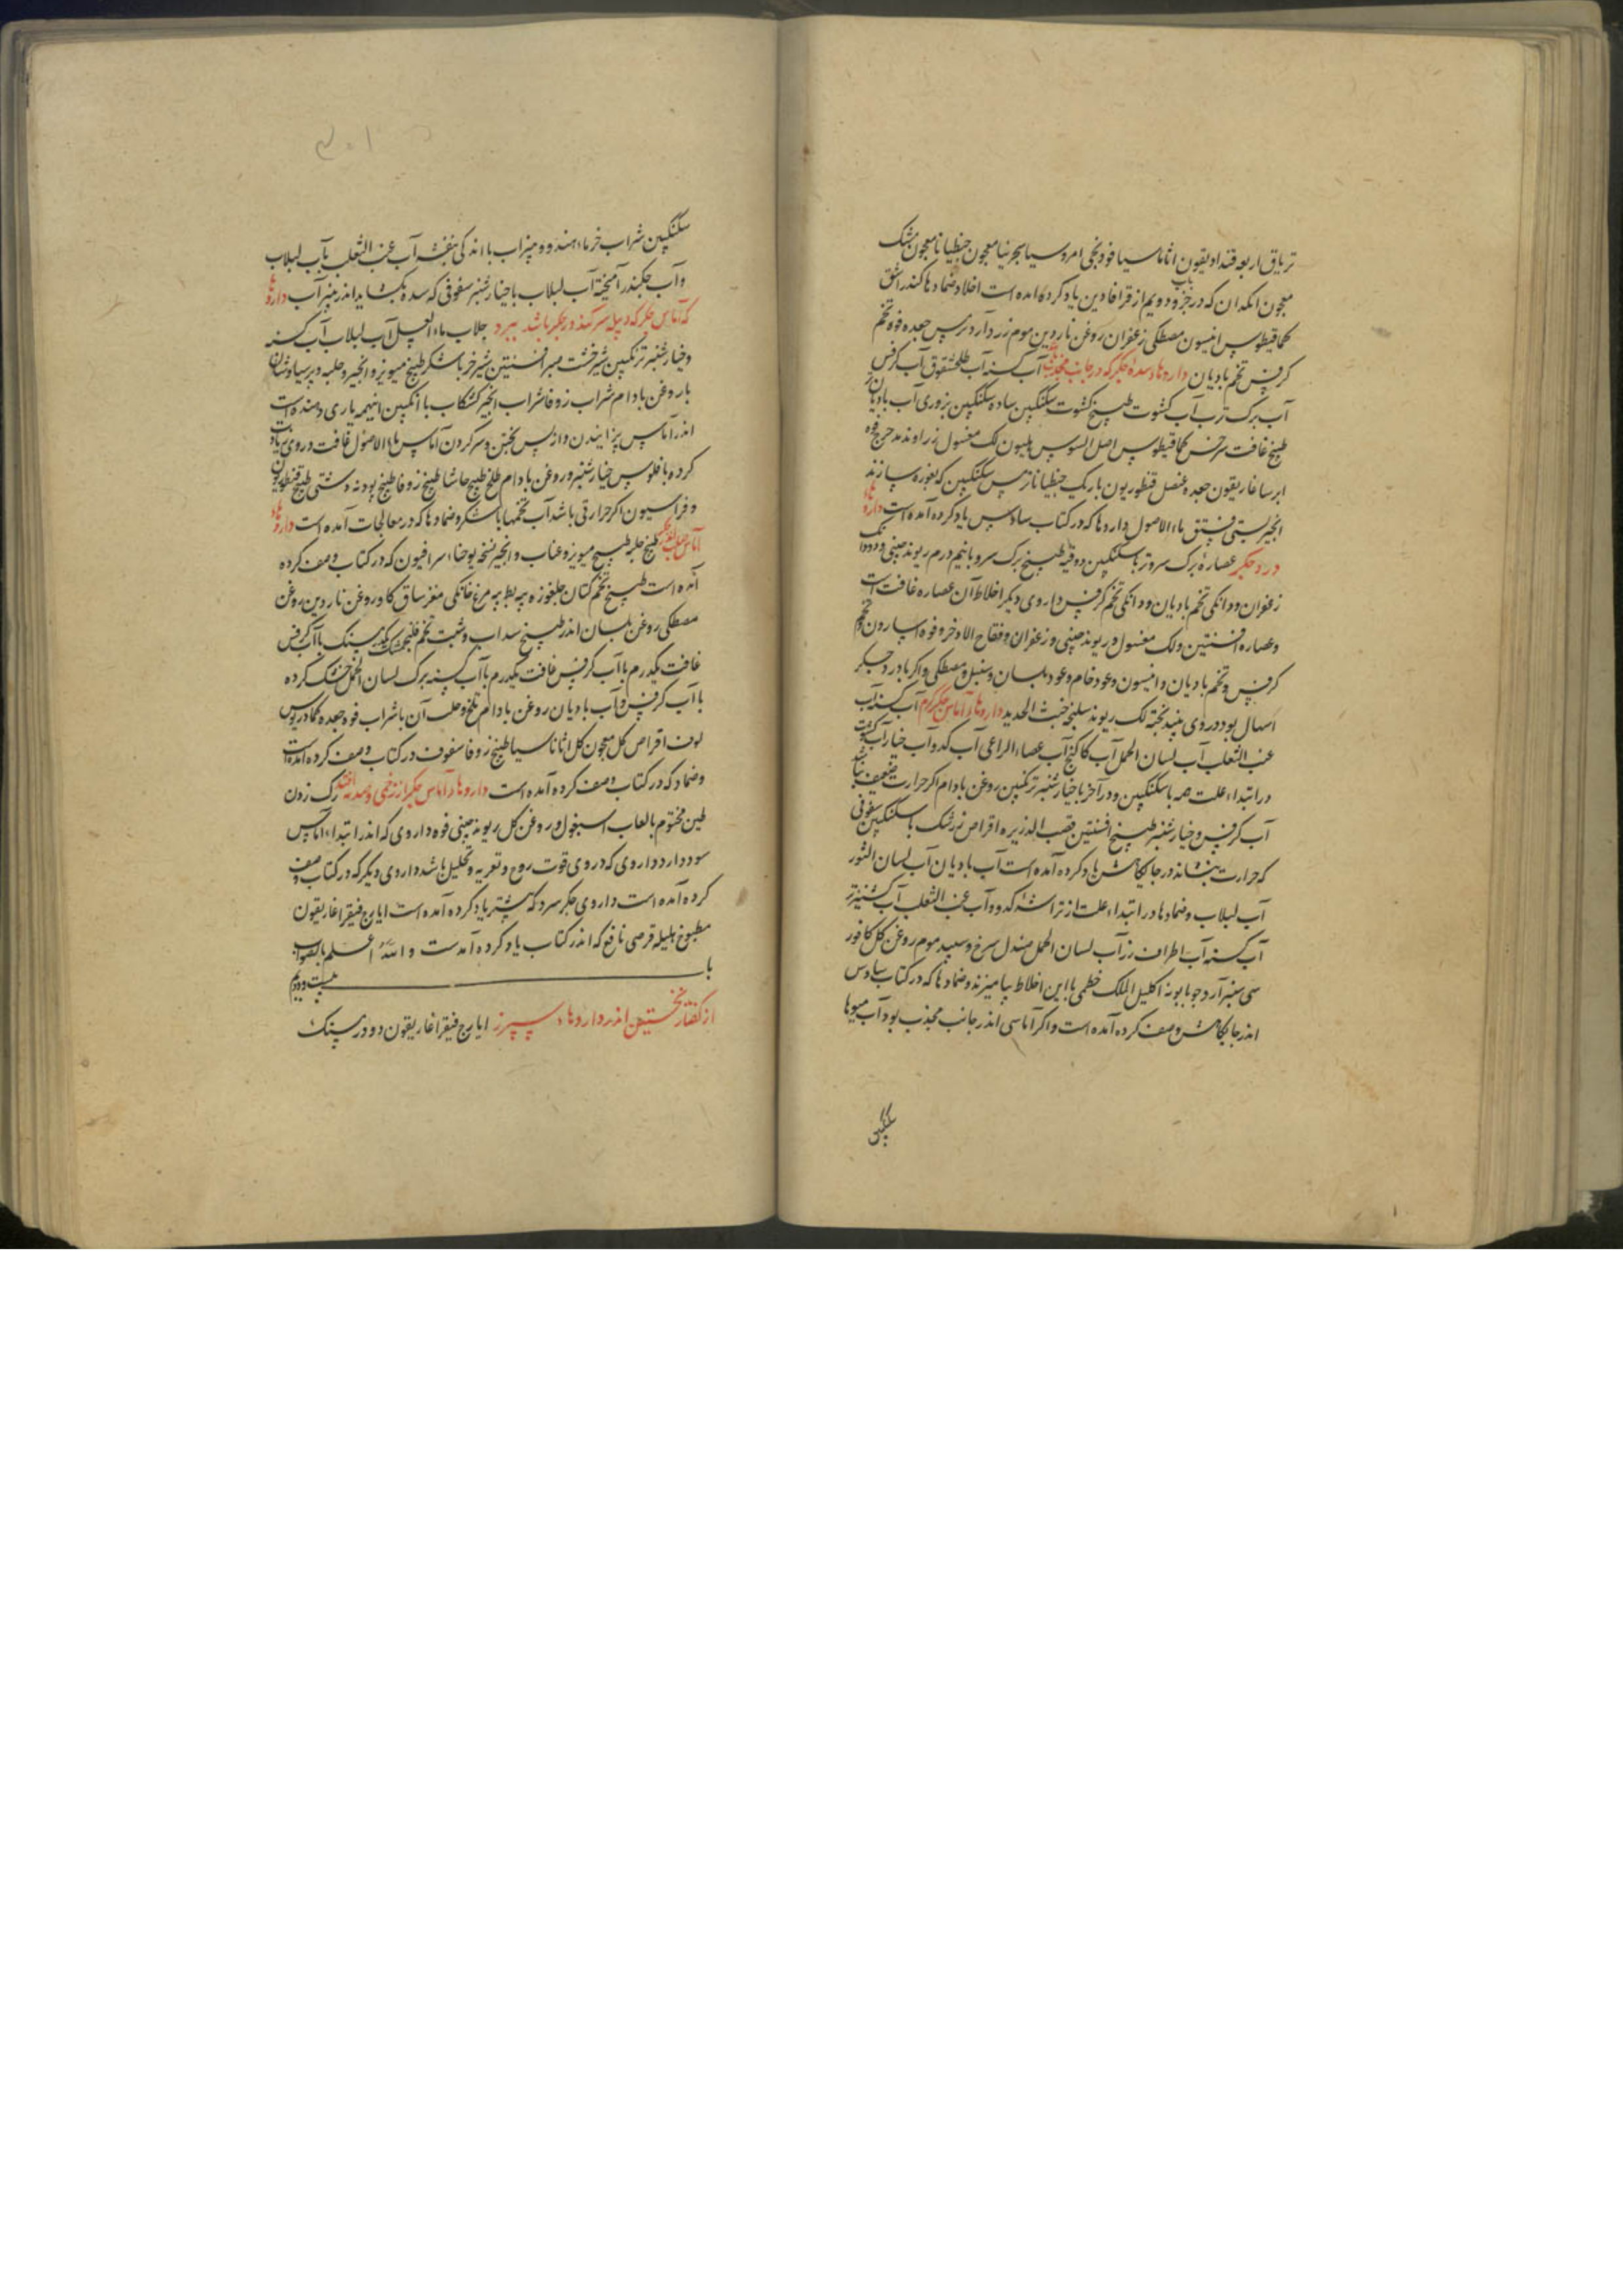 تریاق اربعه قنداویقون اثاناسیا فودنجی امروسیا سجرنیا معجون جنطیانا معجون مشک
معجون انکدان که در جزو دویم از قرافادین یاد کرده امده است اخلاط ضمادها کندر اشق
کمافیطوس انیسون مصطکی زعفران روغن ناردین موم زرد آرد ترمس جعده فوه تخم
کرفس تخم بادیان داروهاء سده جکر که در جانب محدب آب کسنه آب طلخشقوق آب کرفس
آب برک ترب آب کشوت طبیخ کشوت سکنکبین ساده سکنکبین بزوری آب بادیان
طبیخ غافت سرخس کمافیطوس اصل السوس هلیون لک مغسول زراوند مدحرج فوه
ایرسا غاریقون جعده عنصل قنطوریون باریک جنطیانا ترمس سکنکبین که بغوره سازند
انجیر بستی فستق ماء الاصول داروها که در کتاب سادس یاد کرده آمده است داروهاء
درد جکر عصارهٔ برک سرو تر با سکنکبین دو وقیه طبیخ برک سرو با نیم درم ریوند چینی و دو دانک
زعفران و دو دانکی تخم بادیان و دو دانکی تخم کرفس داروی دیکر اخلاط آن عصاره غافت است
و عصاره افسنتین و لک مغسول و ریوند چینی و زعفران و فقاح الاذخر و فوه اسارون و تخم
کرفس و تخم بادیان و انیسون و عود خام و عود بلسان و سنبل و مصطکی و اکر با درد جکر
اسهال بود در وی پنبد پخته لک ریوند سلیخه خبث الحدید داروهاء آماس جکر کرم آب کسنه آب
عنب الثعلب آب لسان الحمل آب کاکنج آب عصاء الراعی آب کدو آب خیار آب کشوت
در ابتداء علت همه با سکنکبین و در آخر با خیار شنبر ترنکبین روغن بادام اکر حرارت ضعیف باشد
آب کرفس و خیار شنبر طبیخ افسنتین قصب الذریره اقراص زرشک با سکنکبین سفوفی
که حرارت بنشاند در جایکاهش یاد کرده آمده است آب بادیان آب لسان الثور
آب لبلاب و ضمادها در ابتداء علت از تراشهٔ کدو و آب عنب الثعلب آب کشنیز تر
آب کسنه آب اطراف رز آب لسان الحمل صندل سرخ و سپید موم روغن کل کافور
سی سنبر آرد جو بابونه اکلیل الملک خطمی با این اخلاط بیامیزند و ضمادها که در کتاب سادس
اندر جایکاهش وصف کرده آمده است و اکر آماسی اندر جانب محدب بود آب میوها
سکنکبین
سکنکبین شراب خرماء هندو و میزاب با اندکی بنفشه آب عنب الثعلب با آب لبلاب
و آب جکندر آمیخته آب لبلاب با خیار شنبر سفوفی که سده بکشاید اندر پنیر آب داروهاء
که آماس جکر که دبیله سر کند در جکر باشد ببرد جلاب ماء العسل آب لبلاب آب کسنه
و خیار شنبر ترنکبین شیرخشت صبر افسنتین شیر خر با شکر طبیخ میویز و انجیر و حلبه و پرسیاوشان
با روغن بادام شراب زوفا شراب انجیر کشکاب با انکبین اینهمه یاری دهنده است
اندر آماس پزانیدن و از پس پختن و سر کردن آماس ماء الاصول غافت در وی زیادت
کرده با فلوس خیار شنبر و روغن بادام طلخ طبیخ حاشا طبیخ زوفا طبیخ پودنه دشتی طبیخ قنطوریون
و فراسیون اکر حرارتی باشد آب تخمها با شکر و ضمادها که در معالجات آمده است داروهاء
آماس صلب جکر طبیخ حلبه طبیخ میویز و عناب و انجیر نسخه یوحناء سرافیون که در کتاب وصف کرده
آمده است طبیخ تخم کتان جلغوزه پیه بط پیه مرغ خانکی مغز ساق کاو روغن ناردین روغن
مصطکی روغن بلسان اندر طبیخ سداب و شبت تخم فلنجمشک یکدرسنک با آب کرفس
غافت یکدرم با آب کرفس غافت یکدرم با آب کسنه برک لسان الحمل خشک کرده
با آب کرفس و آب بادیان روغن بادام تلخ و حلب آن با شراب فوه جعده کمادریوس
لوف اقراص کل معجون کل اثاناسیا طبیخ زوفا سفوف در کتاب وصف کرده آمدست
و ضماد که در کتاب وصف کرده آمده است داروهاء آماس جکر از زخمی و صدمه افتد رک زدن
طین مختوم با لعاب اسبغول و روغن کل ریوند چینی فوه داروی که اندر ابتداء آماس
سود دارد داروی که در وی قوت روع و تغریه و تحلیل باشد داروی دیکر که در کتاب وصف
کرده آمده است داروی جکر سرد که پیشتر یاد کرده آمده است ایارج فیقرا غاریقون
مطبوخ هلیله قرصی نافع که اندر کتاب یاد کرده آمدست والله اعلم بالصواب
باب بیست و دویم
از گفتار نخستین اندر داروهاء سپرز ایارج فیقرا غاریقون دو درسنک